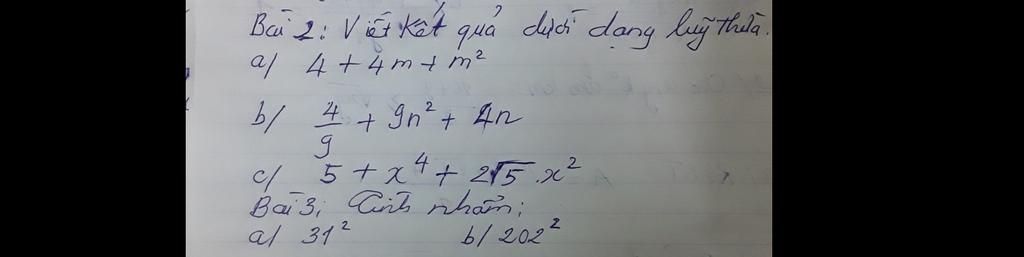 Bài 2: Viết kết quả dưới dạng luỹ thừa.
a/ 4 + 4m + m²
b/ 4/9 + 9n² + 4n
c/ 5 + x⁴ + 2√5.x²
Bài 3: Tính nhẩm:
a/ 31² b/ 202²